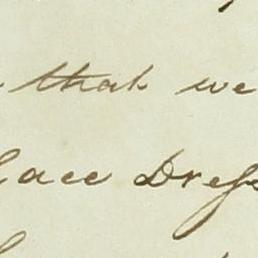 that we
lace Dress